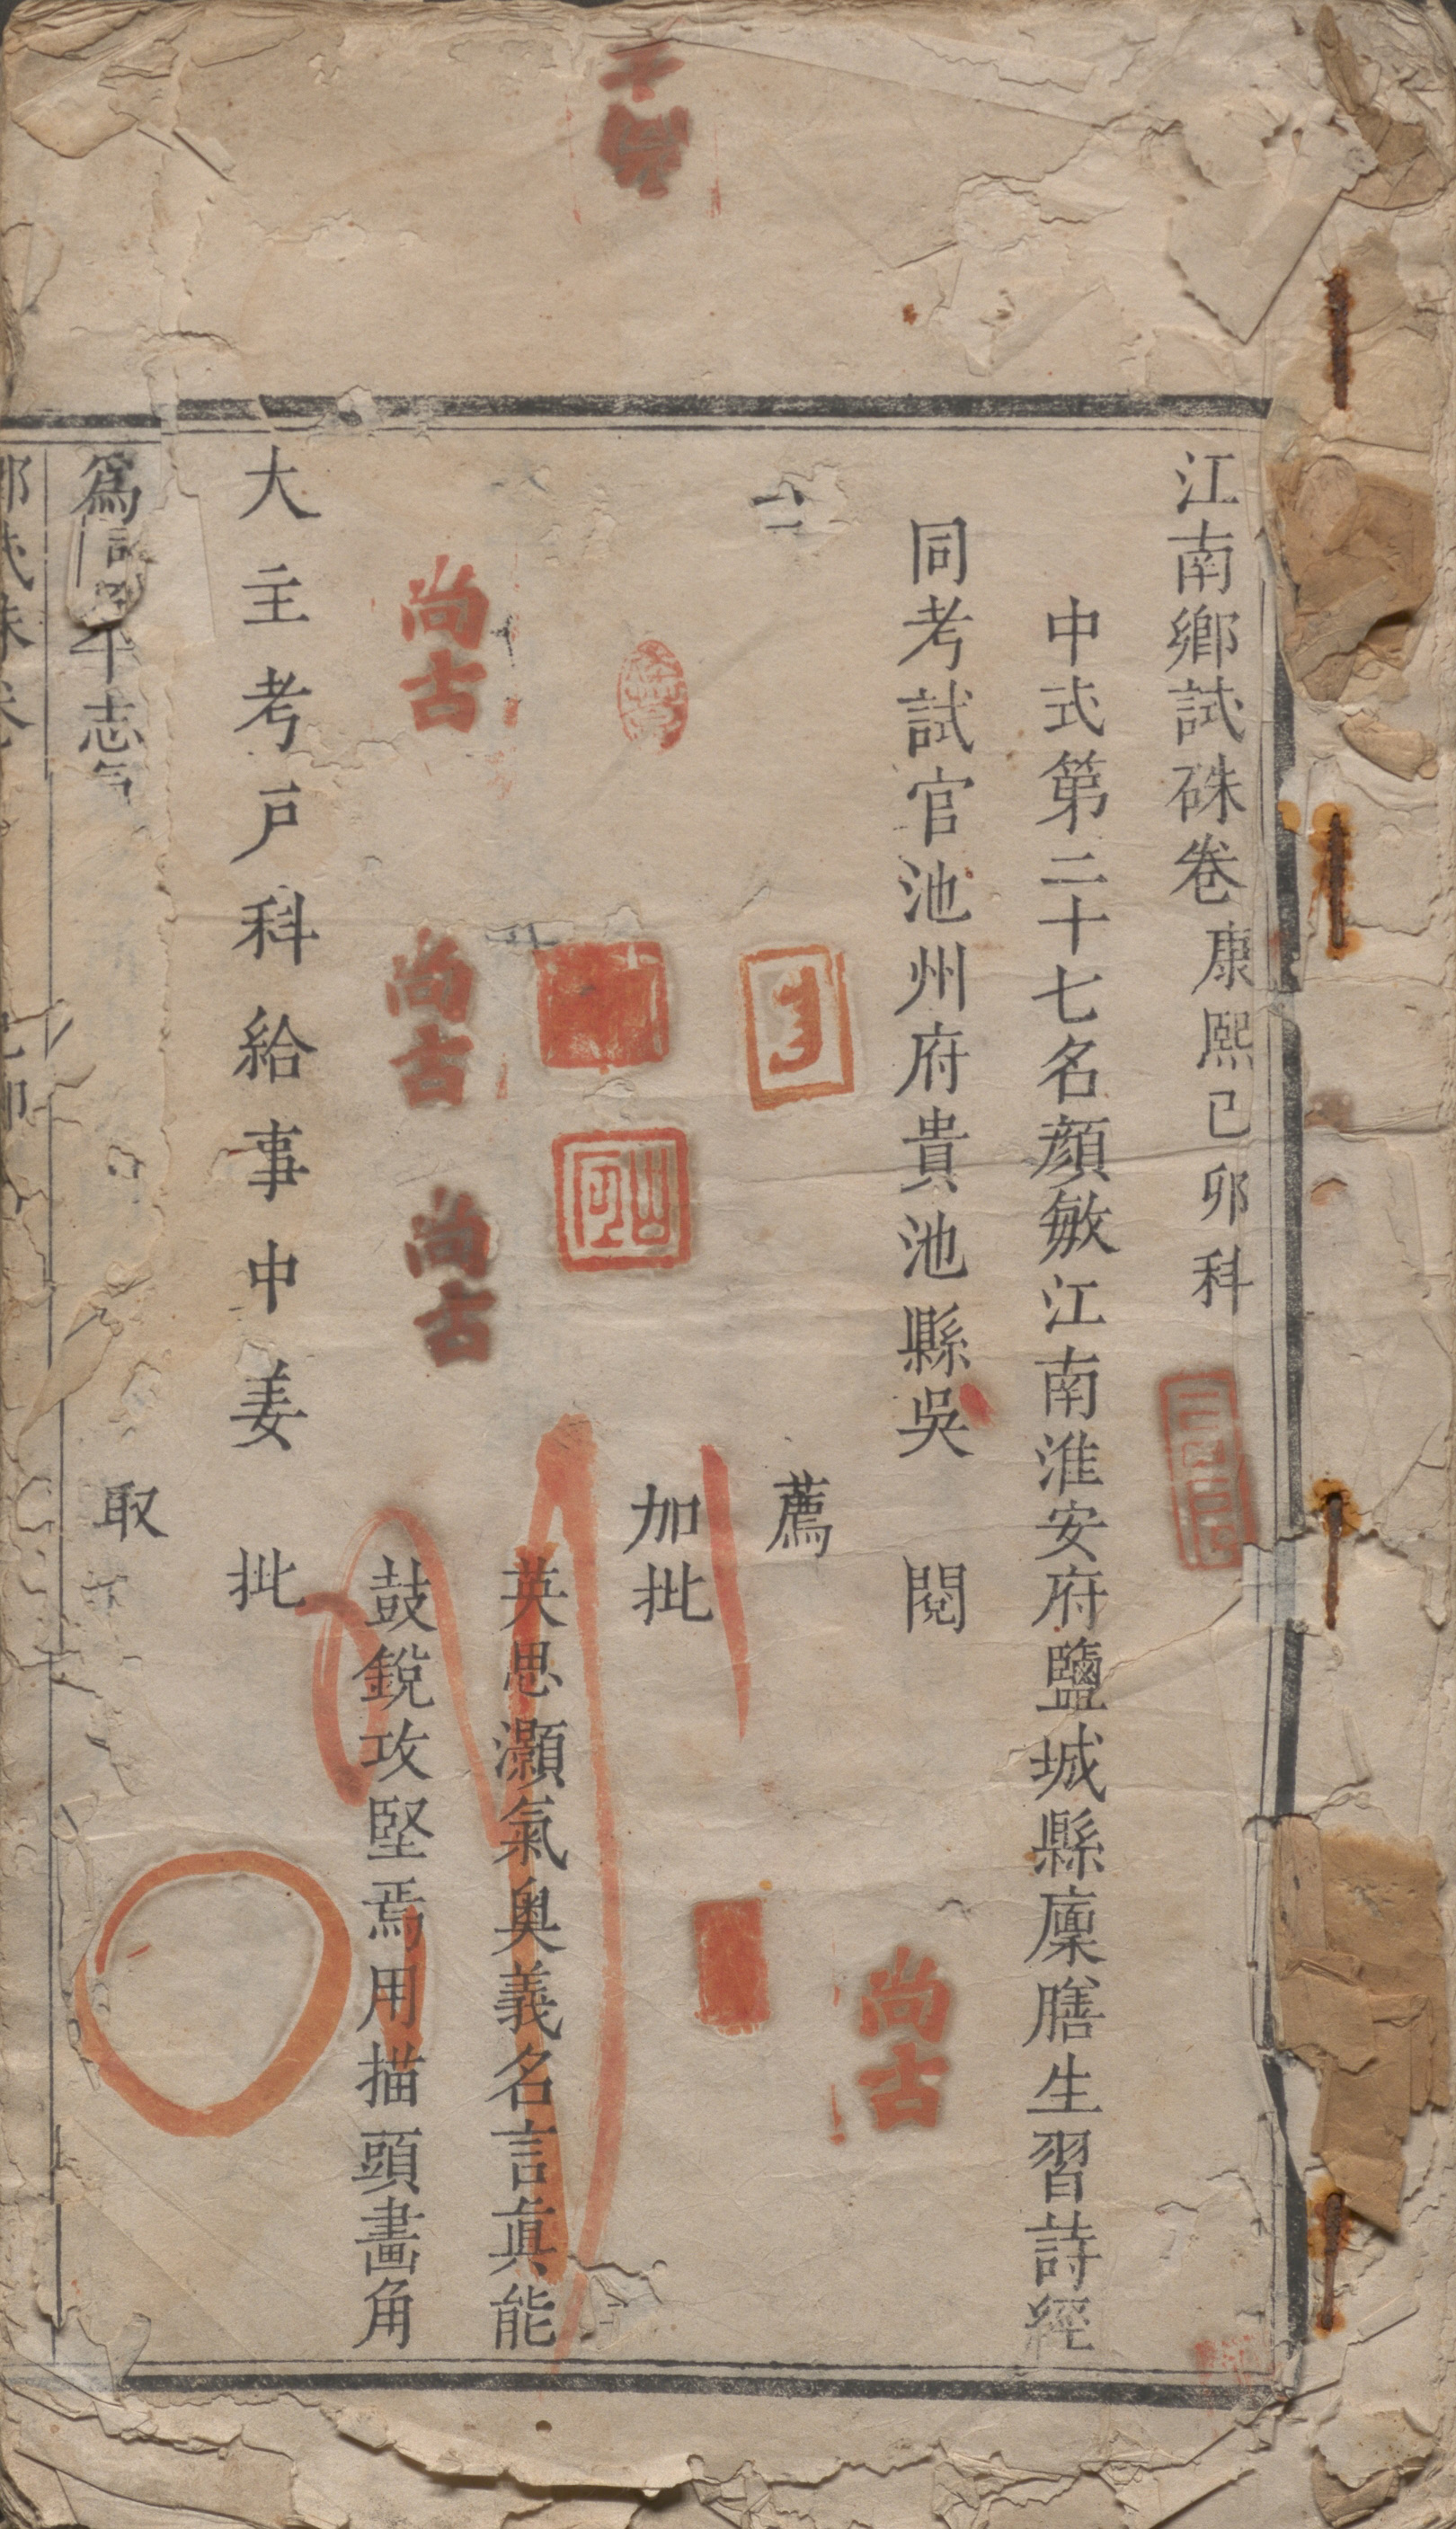 江南鄉試硃卷康熙己卯科
中式第二十七名顏敏江南淮安府鹽城縣廩膳生習詩經
同考試官池州府貴池縣吳 閱
薦
加批
英思灝氣奧義名言眞能
鼓銳攻堅焉用描頭畫角
大主考戶科給事中姜 批
取
爲 志
尚古
尚古
尚古
尚古